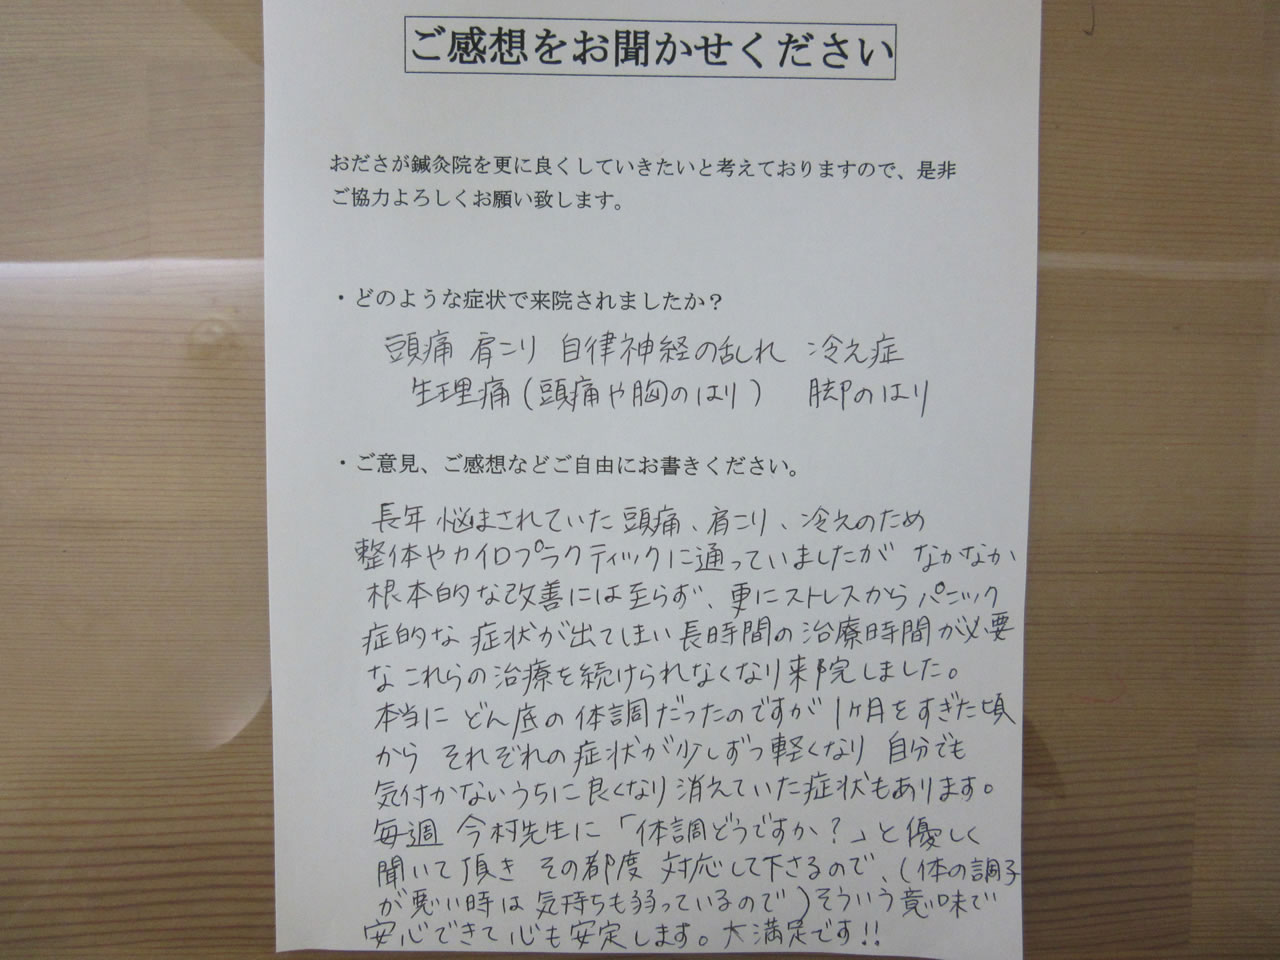 ご感想をお聞かせください
おださが鍼灸院を更に良くしていきたいと考えておりますので、是非
ご協力よろしくお願い致します。
・どのような症状で来院されましたか？
頭痛 肩こり 自律神経の乱れ 冷え症
生理痛(頭痛や胸のはり) 脚のはり
・ご意見、ご感想などご自由にお書きください。
長年 悩まされていた 頭痛、肩こり、冷えのため
整体やカイロプラクティックに通っていましたが なかなか
根本的な改善には至らず、更にストレスから パニック
症的な 症状が出てしまい 長時間の治療時間が必要
な これらの治療を続けられなくなり来院しました。
本当に どん底の体調だったのですが 1ヶ月をすぎた頃
から それぞれの症状が少しずつ軽くなり 自分でも
気付かないうちに良くなり消えていた症状もあります。
毎週 今村先生に「体調どうですか?」と優しく
聞いて頂き その都度 対応して下さるので、(体の調子
が悪い時は 気持ちも弱っているので)そういう意味で
安心できて心も安定します。大満足です!!